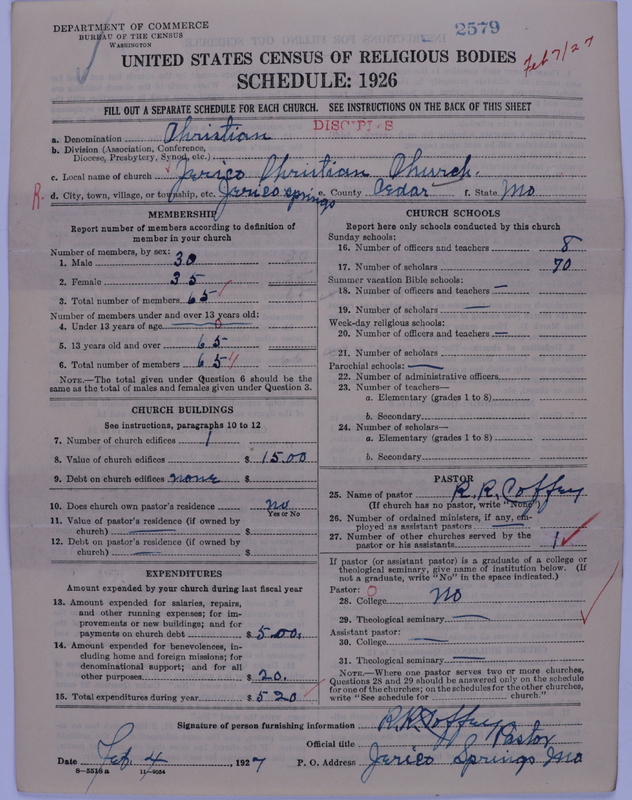 DEPARTMENT OF COMMERCE
BUREAU OF THE CENSUS
WASHINGTON
2579
Feb 7/27
UNITED STATES CENSUS OF RELIGIOUS BODIES
SCHEDULE: 1926
FILL OUT A SEPARATE SCHEDULE FOR EACH CHURCH. SEE INSTRUCTIONS ON THE BACK OF THIS SHEET
DISCIPLES
a. Denomination Christian
b. Division (Association, Conference,
Diocese, Presbytery, Synod, etc.)
c. Local name of church Jerico Christian Church.
R. d. City, town, village, or township, etc. Jerico Springs e. County Cedar f. State Mo
MEMBERSHIP
Report number of members according to definition of
member in your church
Number of members, by sex:
1. Male 30
2. Female 35
3. Total number of members 65
Number of members under and over 13 years old:
4. Under 13 years of age 0
5. 13 years old and over 65
6. Total number of members 65
NOTE.—The total given under Question 6 should be
same as the total of males and females given under Question 3.
CHURCH BUILDINGS
See instructions, paragraphs 10 to 12
7. Number of church edifices 1
8. Value of church edifices $ 1500
9. Debt on church edifices none $
10. Does church own pastor's residence no
Yes or No
11. Value of pastor's residence (if owned by
church) $
12. Debt on pastor's residence (if owned by
church) $
EXPENDITURES
Amount expended by your church during last fiscal year
13. Amount expended for salaries, repairs,
and other running expenses; for im-
provements or new buildings; and for
payments on church debt $ 500.
14. Amount expended for benevolences, in-
cluding home and foreign missions; for
denominational support; and for all
other purposes $ 20.
15. Total expenditures during year $ 520
CHURCH SCHOOLS
Report here only schools conducted by this church
Sunday schools:
16. Number of officers and teachers 8
17. Number of scholars 70
Summer vacation Bible schools:
18. Number of officers and teachers
19. Number of scholars
Week-day religious schools:
20. Number of officers and teachers
21. Number of scholars
Parochial schools:
22. Number of administrative officers
23. Number of teachers—
a. Elementary (grades 1 to 8)
b. Secondary
24. Number of scholars—
a. Elementary (grades 1 to 8)
b. Secondary
PASTOR
25. Name of pastor R. R. Coffey
(If church has no pastor, write "None")
26. Number of ordained ministers, if any, em-
ployed as assistant pastors
27. Number of other churches served by the
pastor or his assistants 1
If pastor (or assistant pastor) is a graduate of a college or
theological seminary, give name of institution below. (If
not a graduate, write "No" in the space indicated.)
Pastor: 0
28. College No
29. Theological seminary
Assistant pastor:
30. College
31. Theological seminary
NOTE.—Where one pastor serves two or more churches,
Questions 28 and 29 should be answered only on the schedule
for one of the churches; on the schedules for the other churches,
write "See schedule for church."
Signature of person furnishing information R. R. Coffey
Official title Pastor
Date Feb. 4, 1927 P. O. Address Jerico Springs Mo
8—5518 a 11—9054